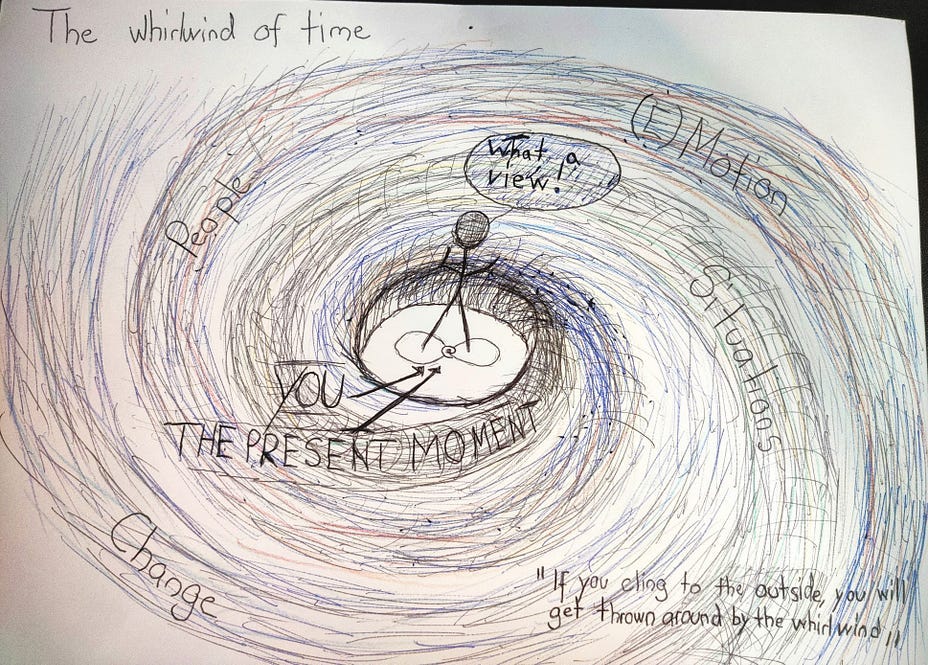 The whirlwind of time
(E)Motion
What a
view!
People
Situations
YOU
THE PRESENT MOMENT
Change
"If you cling to the outside, you will
get thrown around by the whirlwind"